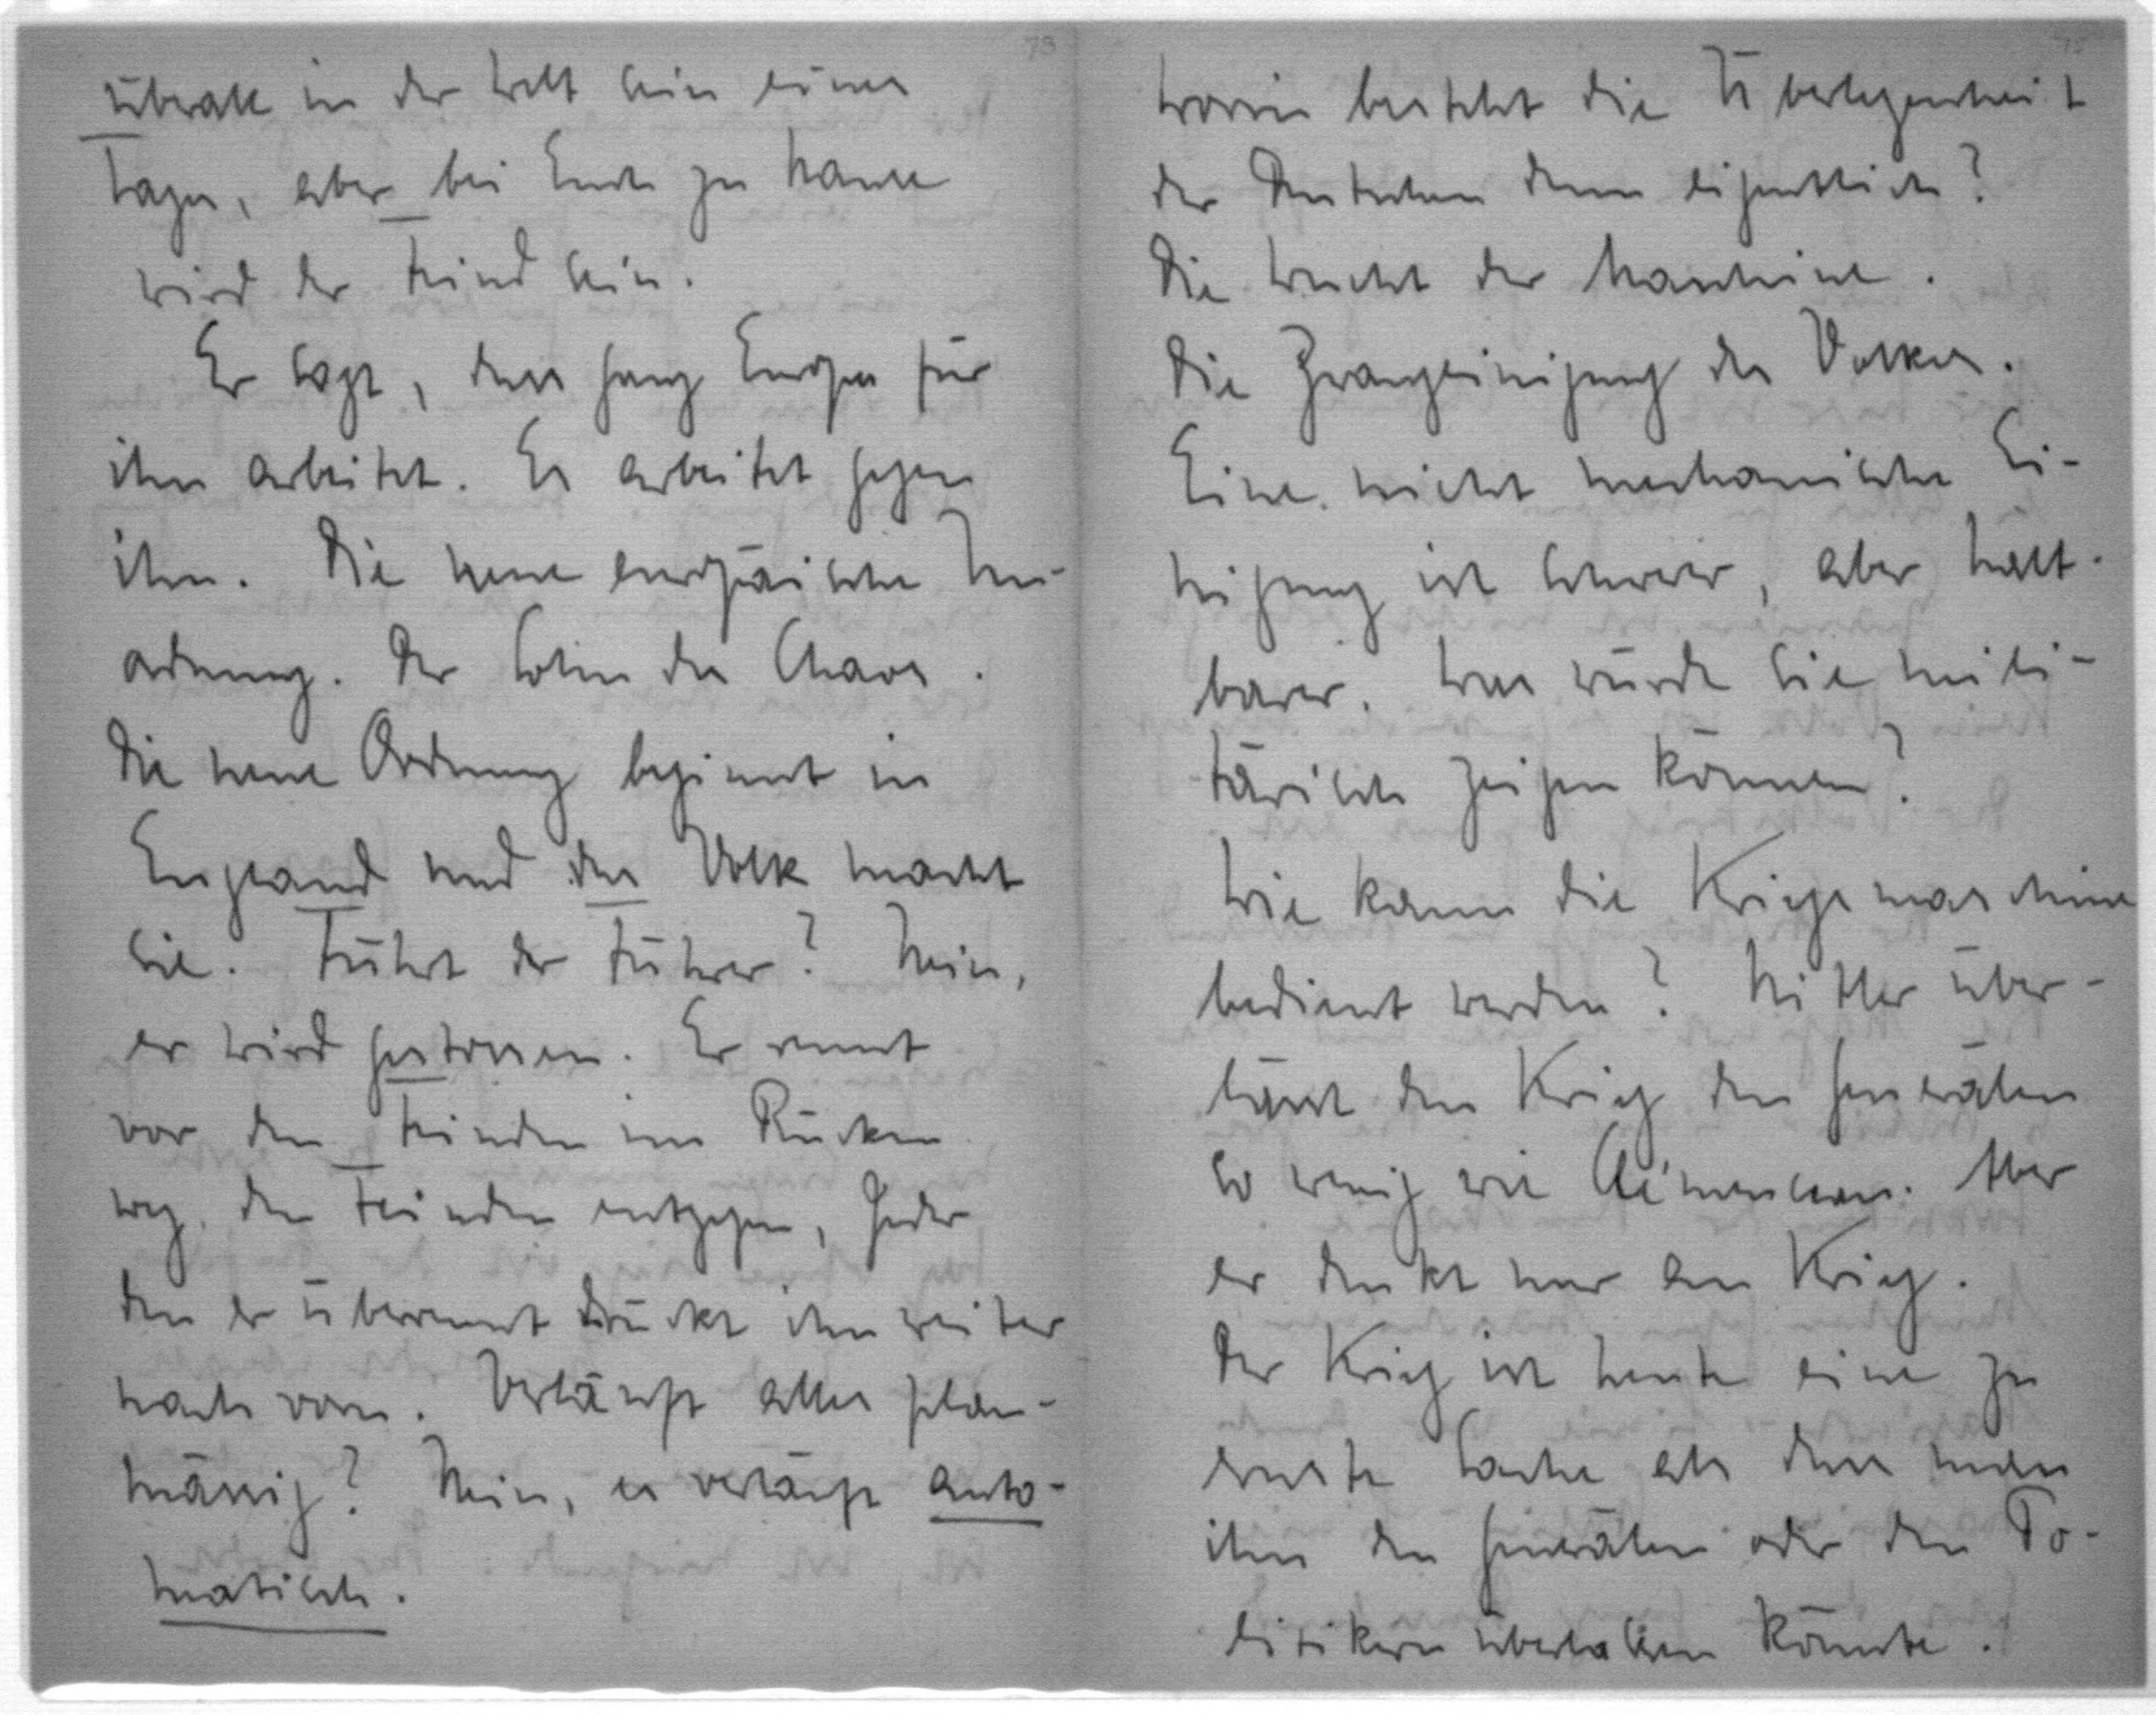 überall in der Welt sein eines
Tages, aber bei Euch zu Hause
wird der Feind sein.
Er sagt, dass ganz Europa für
ihn arbeitet. Es arbeitet gegen
ihn. Die neue europäische Un-
ordnung. Der Sohn des Chaos.
Die neue Ordnung beginnt in
England und das Volk macht
sie. Führt der Führer? Nein,
er wird gestossen. Er rennt
vor den Feinden im Rücken
weg, den Feinden entgegen, Jeder
den er überrennt drückt ihn weiter
nach vorn. Verläuft alles plan-
mässig? Nein, es verläuft auto-
matisch.
Worin besteht die Überlegenheit
der Deutschen denn eigentlich?
Die Wucht der Maschine.
Die Zwangseinigung des Volkes.
Eine nicht mechanische Ei-
nigung ist schwerer, aber halt-
barer. Was würde sie mili-
tärisch zeigen können?
Wie kann die Kriegsmaschine
bedient werden? Hitler über-
lässt den Krieg den Generälen
so wenig wie Clémenceau. Aber
er denkt nur an Krieg.
Der Krieg ist heute eine zu
ernste Sache als dass man
ihn den Generälen oder den Po-
litikern überlassen könnte.